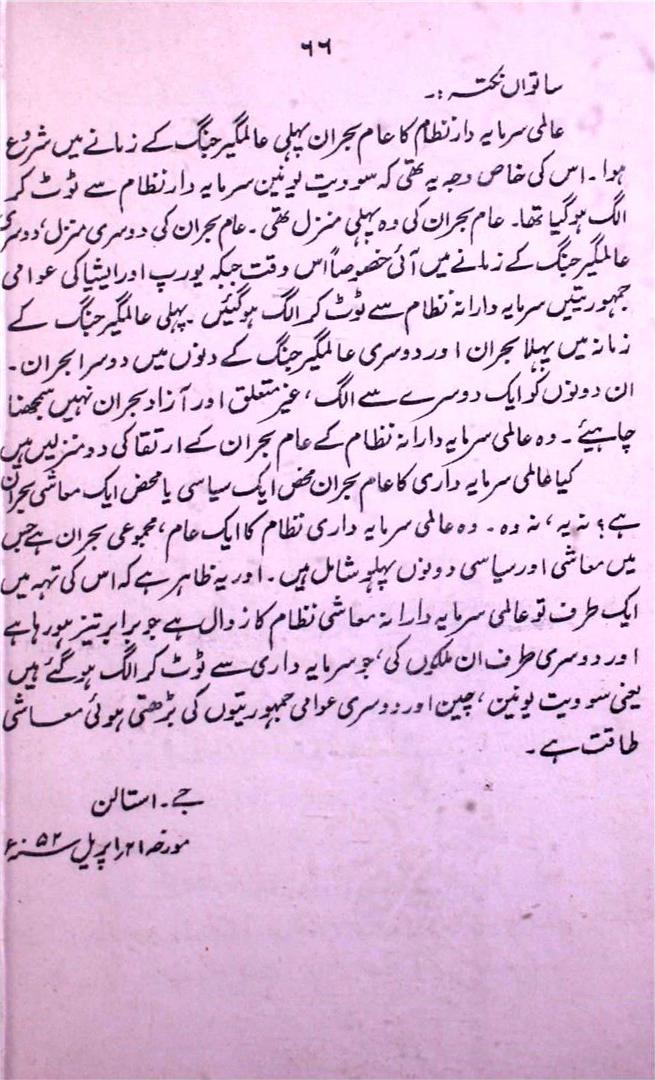 ۶۶
ساتواں نکتہ :۔
عالمی سرمایہ دار نظام کا عام بحران پہلی عالمگیر جنگ کے زمانے میں شروع
ہوا۔ اس کی خاص وجہ یہ تھی کہ سوویت یونین سرمایہ دار نظام سے ٹوٹ کر
الگ ہو گیا تھا۔ عام بحران کی وہ پہلی منزل تھی۔ عام بحران کی دوسری منزل، دوسری
عالمگیر جنگ کے زمانے میں آئی خصوصاً اس وقت جبکہ یورپ اور ایشیا کی عوامی
جمہوریتیں سرمایہ دارانہ نظام سے ٹوٹ کر الگ ہو گئیں۔ پہلی عالمگیر جنگ کے
زمانہ میں پہلا بحران اور دوسری عالمگیر جنگ کے دنوں میں دوسرا بحران۔
ان دونوں کو ایک دوسرے سے الگ، غیر متعلق اور آزاد بحران نہیں سمجھنا
چاہیئے۔ وہ عالمی سرمایہ دارانہ نظام کے عام بحران کے ارتقا کی دو منزلیں ہیں
کیا عالمی سرمایہ داری کا عام بحران محض ایک سیاسی یا محض ایک معاشی بحران
ہے؟ نہ یہ، نہ وہ۔ وہ عالمی سرمایہ داری نظام کا ایک عام، مجموعی بحران ہے جس
میں معاشی اور سیاسی دونوں پہلو شامل ہیں۔ اور یہ ظاہر ہے کہ اس کی تہہ میں
ایک طرف تو عالمی سرمایہ دارانہ معاشی نظام کا زوال ہے جو برابر تیز ہو رہا ہے
اور دوسری طرف ان ملکوں کی، جو سرمایہ داری سے ٹوٹ کر الگ ہو گئے ہیں
یعنی سوویت یونین، چین اور دوسری عوامی جمہوریتوں کی بڑھتی ہوئی معاشی
طاقت ہے۔
جے۔ استالن
مورخہ ۲۱ اپریل سنہ ۵۲ء